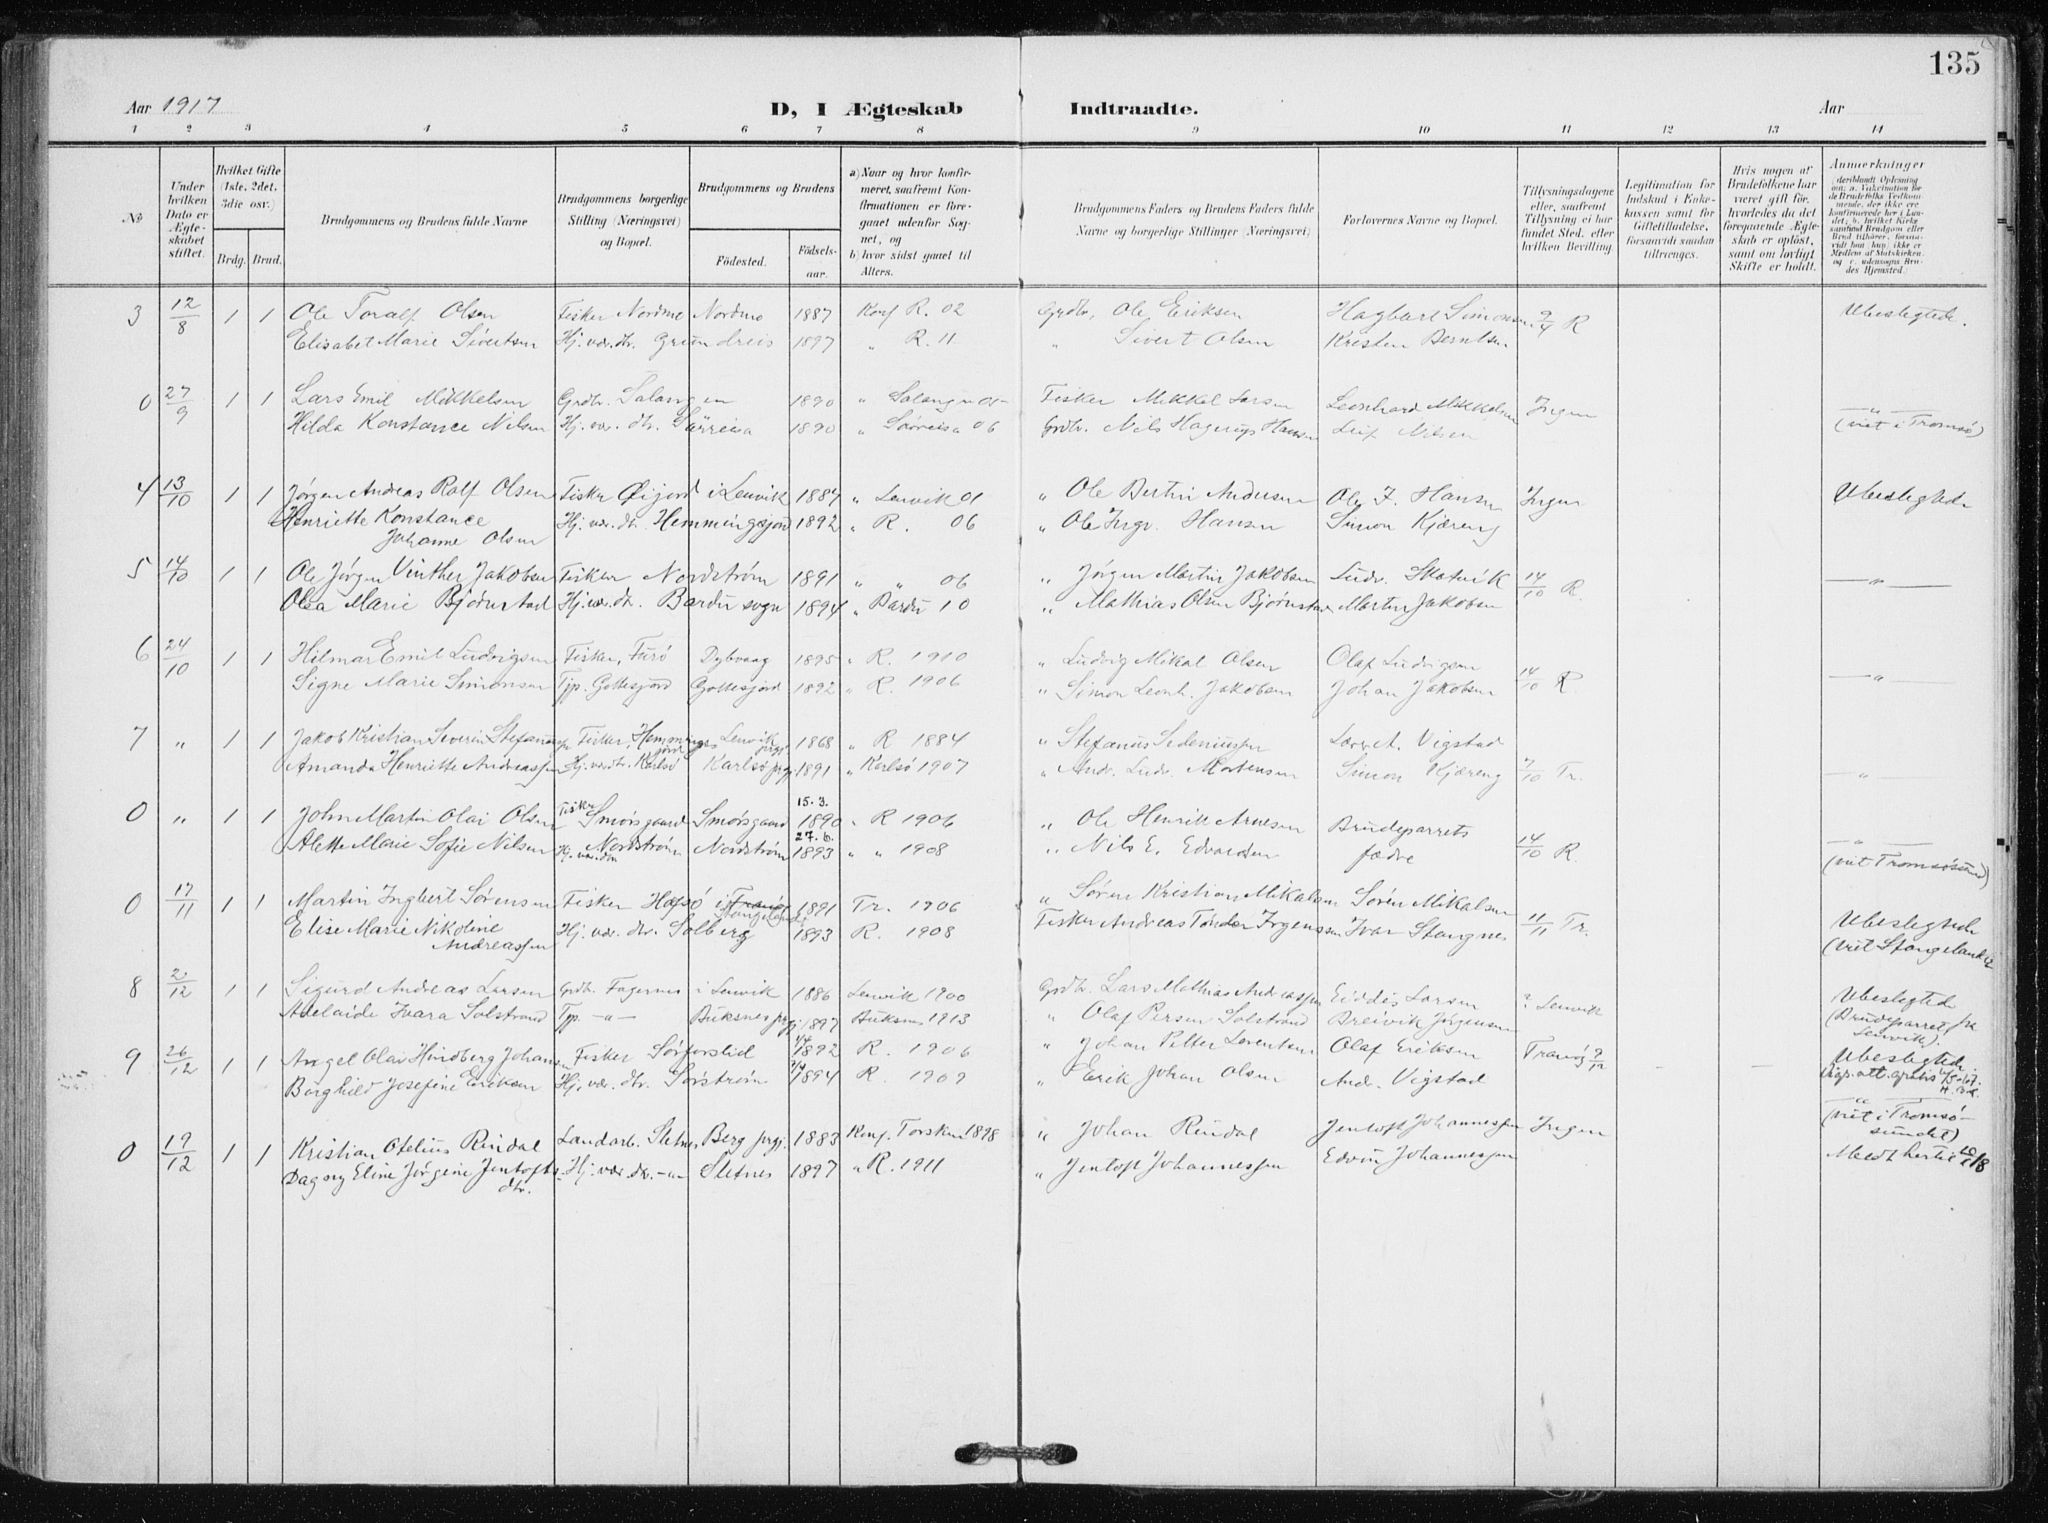 135
Aar 1917 D, I Ægteskab Indtraadte. Aar
1 2 3 4 5 6 7 8 9 10 11 12 13 14
No
Under hvilken Dato er Ægteskabet stiftet.
Hvilket Gifte (1ste, 2det, 3die osv.)
Brdg. Brud.
Brudgommens og Brudens fulde Navne
Brudgommens borgerlige Stilling (Næringsvei) og Bopæl.
Brudgommens og Brudens
Fødested. Fødselsaar.
a) Naar og hvor konfirmeret, saafremt Konfirmationen er foregaaet udenfor Sognet, og
b) hvor sidst gaaet til Alters.
Brudgommens Faders og Brudens Faders fulde Navne og borgerlige Stillinger (Næringsvei)
Forlovernes Navne og Bopæl.
Tillysningsdagene eller, saafremt Tillysning ei har fundet Sted, efter hvilken Bevilling.
Legitimation for Indskud i Enkekassen samt for Giftetilladelse, forsaavidt saadan tiltrænges.
Hvis nogen af Brudefolkene har været gift før, hvorledes da det foregaaende Ægteskab er opløst, samt om lovligt Skifte er holdt.
Anmerkninger
3 12/8 1 1 Ole Toralf Olsen Fisker Nordmo Nordmo 1887 Konf R. 02 Grdbr. Ole Eriksen Hagbart Simonsen 9/4 R Ubeslegtede.
Elisabet Marie Sivertsen Hj. vær. dtr. Grundreis 1897 " R. 11 " Sivert Olsen Kristen Berntsen
0 27/9 1 1 Lars Emil Mikkelsen Grdbr. Salangen 1890 " Salangen Fisker Mikkel Larsen Leonhard Mikkelsen Ingen — " —
Hilda Konstance Nilsen Hj. vær. dtr. Sørreisa 1890 " Sørreisa 06 Grdbr. Nils Hagerup Hansen Leif Nilsen (viet i Tromsø)
4 13/10 1 1 Jørgen Andreas Ralf Olsen Fisker Øijord i Lenvik 1884 " Lenvik 01 " Ole Bertin Andersen Ole J. Hansen Ingen Ubeslegtede
Henriette Konstance Hj. vær. dtr. Hemmingsjord 1892 " R. 06 " Ole Ingv. Hansen Simon Kjæreng
Johanne Olsen
5 14/10 1 1 Ole Jørgen Vinther Jakobsen Fisker Nordstrøm 1891 " " 06 " Jørgen Martin Jakobsen Ludv. Skatvik 14/10 R. — " —
Olea Marie Bjørnstad Hj. vær. dtr. Bardu sogn 1894 " Bardu 10 " Mathias Olsen Bjørnstad Martin Jakobsen
6 24/10 1 1 Hilmar Emil Ludvigsen Fisker, Furø Dybvaag 1895 " R. 1910 " Ludvig Mikal Olsen Olaf Ludvigsen 14/10 R — " —
Signe Marie Simonsen Tjp. Gottesjord Gottesjord 1892 " R. 1906 " Simon Leonh. Jakobsen Johan Jakobsen
7 " 1 1 Jakob Kristian Severin Stefanussen Fisker, Hemmingsjord Lenvik prgj. 1868 " R 1884 " Stefanus Sedeniussen Vigstad 7/10 Tr. — " —
Amanda Henriette Andreassen Hj. vær. dtr. Karlsø Karlsø prgj. 1891 " Karlsø 1907 " Andr. Ludv. Mortensen Simon Kjæreng
0 " 1 1 John Martin Olai Olsen Fisker Smørsgaard Smørsgaard 15.3. 1890 " R 1906 " Ole Henrik Arnesen Brudeparrets 14/10 R. — " —
Alette Marie Sofie Nilsen Hj. vær. dtr. Nordstrøm Nordstrøm 27.6. 1893 " " 1908 " Nils E. Edvardsen fædre (viet Tromsøsund)
0 17/11 1 1 Martin Ingbert Sørensen Fisker Hofsø i Tranøy Stangeland 1891 Tr. 1906 " Søren Kristian Mikalsen Søren Mikalsen 11/11 Tr. Ubeslegtede
Elise Marie Nikoline Hj. vær. dtr. Solberg 1893 R. 1908 Fisker Andreas Tønder Jrgenssen Ivar Stangnes (viet Stangeland
Andreassen
8 2/12 1 1 Sigurd Andreas Larsen Grdbr. Fagernes i Lenvik 1886 Lenvik 1900 Grdbr. Lars Mathias Andreassen Eiddis Larsen ? Lenvik Ubeslegtede
Adelaide Ivara Solstrand Tjp. -"- Buksnes prgj. 1897 Buksnes 1913 " Olaf Persen Solstrand Breivik Jørgensen (Brudeparret fra Lenvik).
9 26/12 1 1 Angel Olai Hindberg Johansen Fisker Sørforslid 1892 R. 1906 " Johan Petter Lorentsen Olaf Eriksen Tranøy 9/12 Ubeslegtede
Borghild Josefine Eriksen Hj. vær. dtr. Sørstrøm 1894 R. 1909 " Erik Johan Olsen Andr. Vigstad
0 19/12 1 1 Kristian Ofelius Rindal Landarb. Sletnes Berg prgj. 1883 Konf. Torsken 1898 " Johan Rindal Jentoft Johannessen Ingen — " — (viet i Tromsøsundet)
Dagny Eline Jørgine Jentoftsdtr. Hj. vær. dtr. -"- Sletnes 1897 " R. 1911 " Jentoft Johannessen Edvin Johannessen